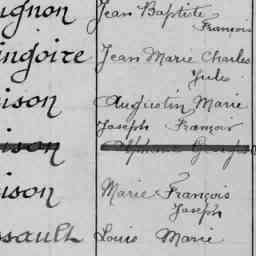 ignon Jean Baptiste
François
ingoire Jean Marie Charles
Jules
ison Augustin Marie
Joseph François
ison Alphonse Georges
ison Marie François
Joseph
ssault Louis Marie